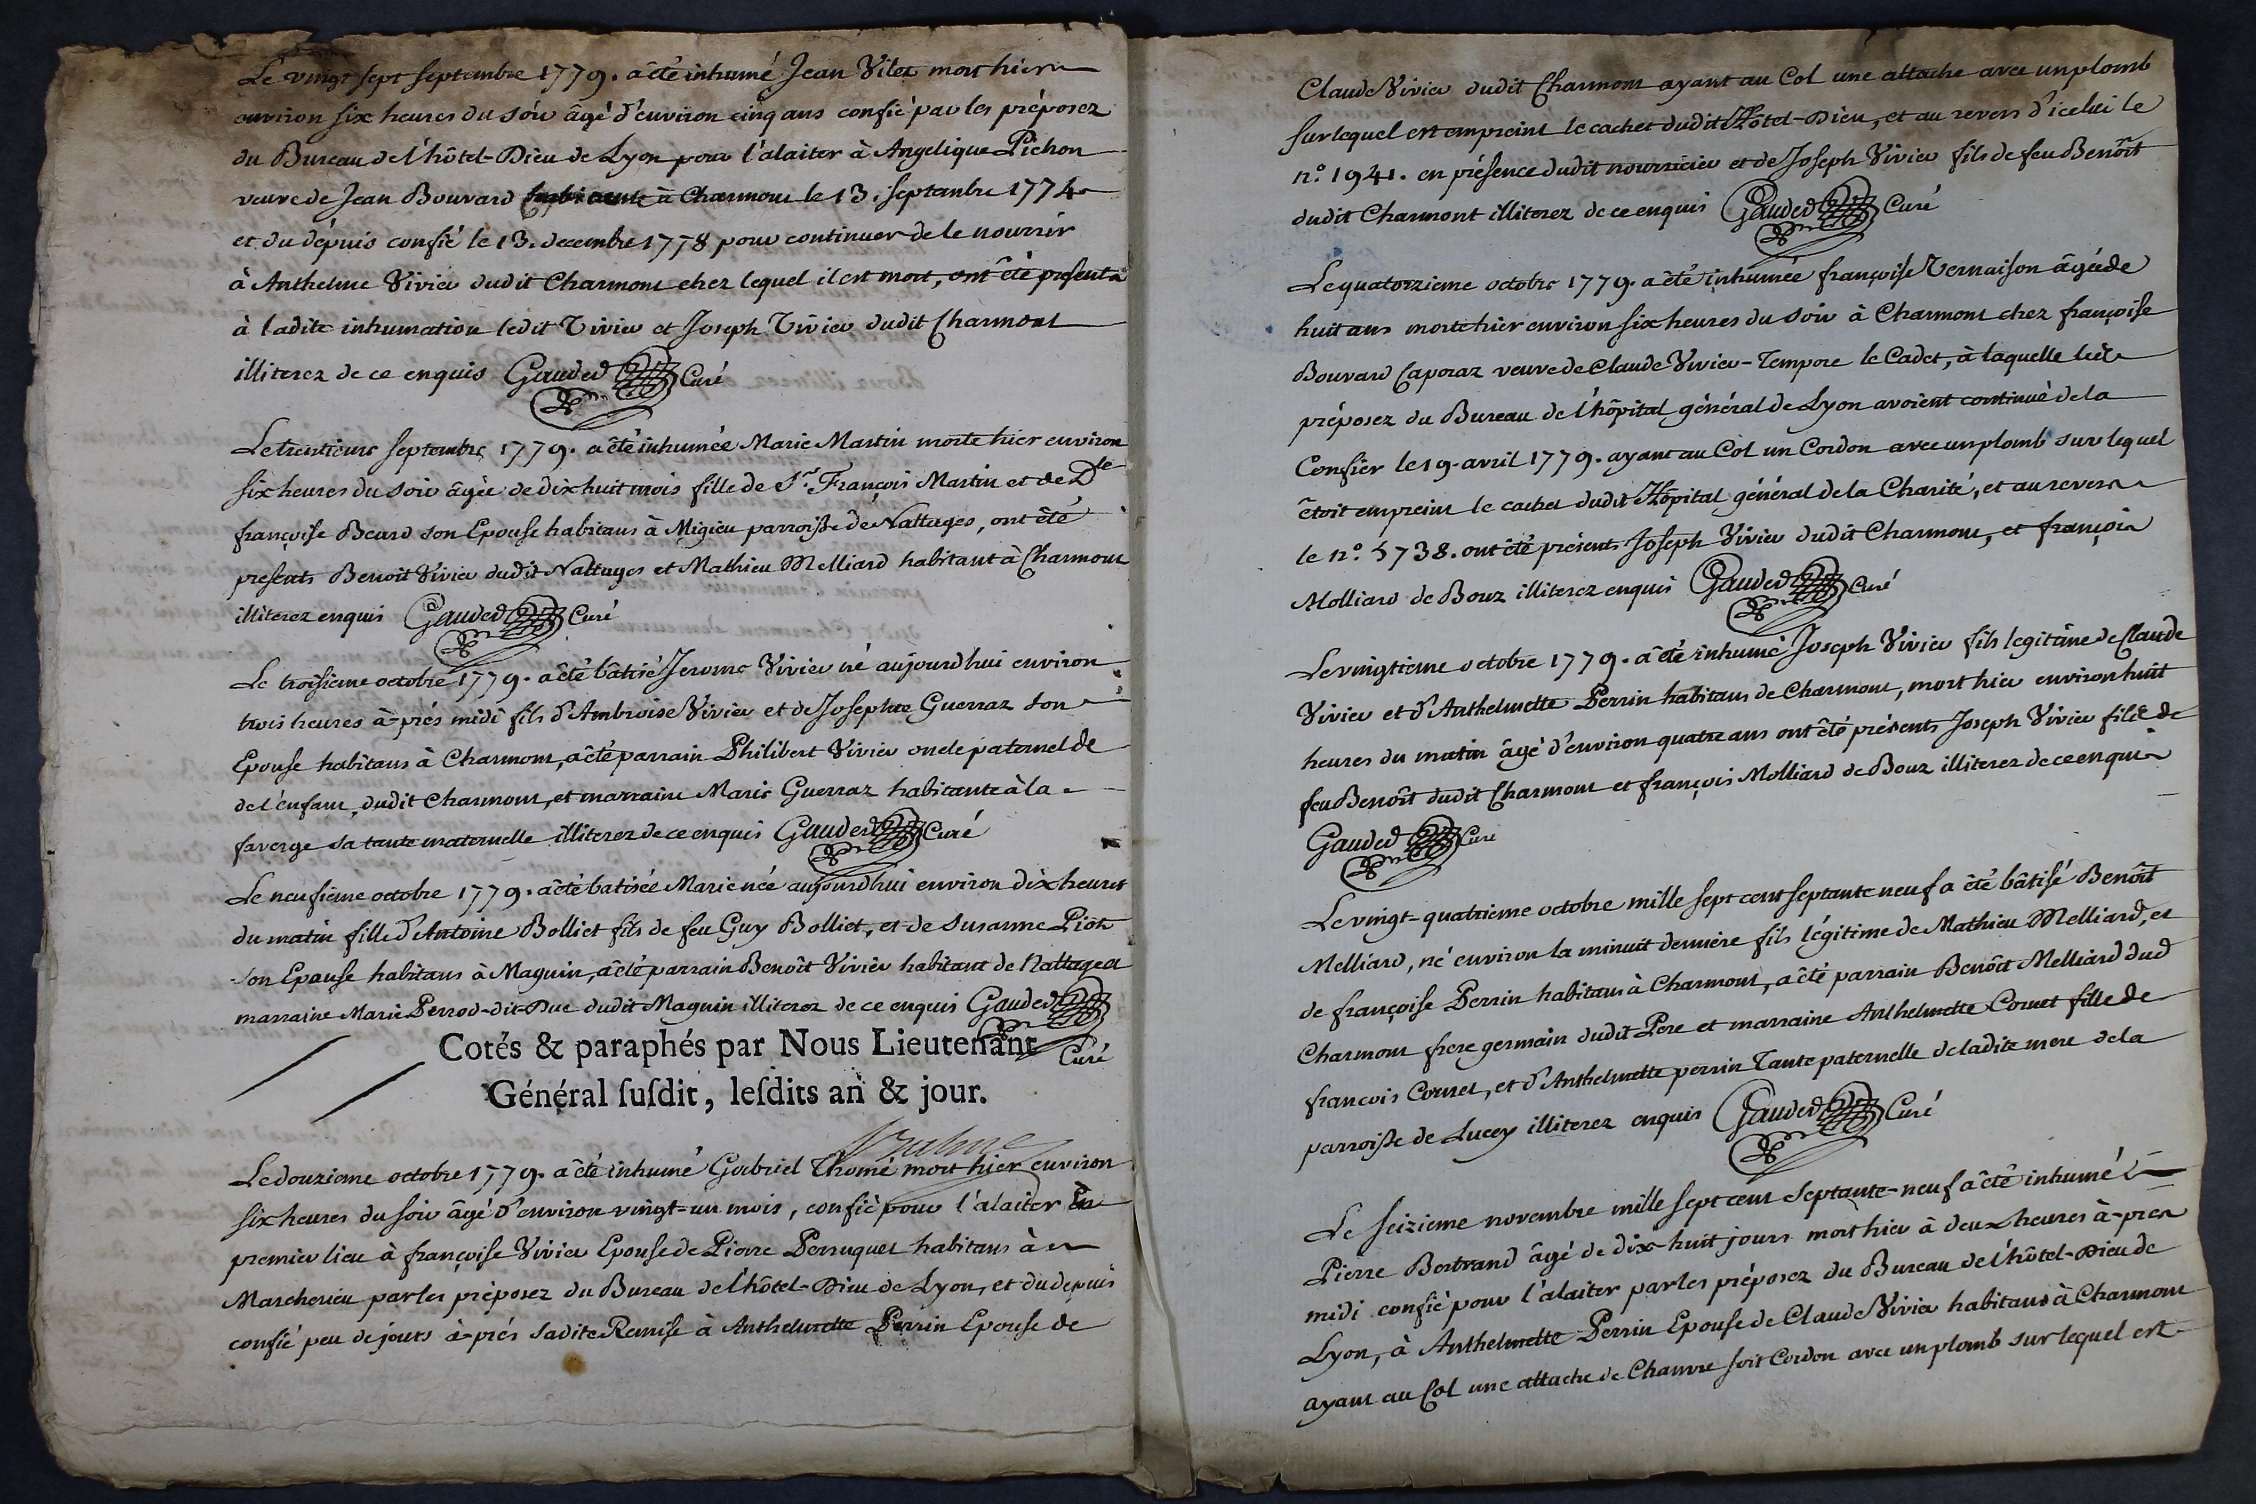 Le vingt sept septembre 1779. a été inhumé Jean Vilet mort hier
environ six heures du soir âgé d'environ cinq ans confié par les préposez
du Bureau de l'hôtel-Dieu de Lyon pour l'alaiter à Angelique Pichon
veuve de Jean Bouvard habitante à Charmont le 13. septembre 1774
et du dépuis confié le 13. decembre 1778 pour continuer de le nourrir
à Anthelme Vivier dudit Charmont chez lequel il est mort, ont été present
à ladite inhumation ledit Vivier et Joseph Vivier dudit Charmont
illiterez de ce enquis Gauded Curé
Le trentieme septembre 1779. a été inhumée Marie Martin morte hier environ
six heures du soir âgée de dix huit mois fille de Sr. François Martin et de Dle
françoise Beard son Epouse habitans à Migieu parroisse de Nattages, ont été
presents Benoit Vivier dudit Nattages et Mathieu Melliard habitant à Charmont
illiterez enquis Gauded Curé
Le troisieme octobre 1779. a été bâtisé Jerome Vivier né aujourdhui environ
trois heures à-prés midi fils d'Ambroise Vivier et de Josephte Guerraz son
Epouse habitans à Charmont, a été parrain Philibert Vivier oncle paternel de
de l'enfant, dudit Charmont, et marraine Marie Guerraz habitante à la
faverge sa tante maternelle illiterez de ce enquis Gauded Curé
Le neufieme octobre 1779. a été batisée Marie née aujourdhui environ dix heures
du matin fille d'Antoine Bolliet fils de feu Guy Bolliet, et de Susanne Piot
son Epouse habitans à Magnin, a été parrain Benoît Vivier habitant de Nattages
marraine Marie Perrod-dit-Duc dudit Magnin illiterez de ce enquis Gauded
Curé
Cotés & paraphés par Nous Lieutenant
Général ſuſdit, leſdits an & jour.
Le douzieme octobre 1779. a été inhumé Gabriel Thomé mort hier environ
six heures du soir âgé d'environ vingt-un mois, confié pour l'alaiter En
premier lieu à françoise Vivier Epouse de Pierre Perruquet habitans à
Marcherieu par les préposez du Bureau de l'hôtel-Dieu de Lyon, et du depuis
confié peu de jours à-prés sadite Remise à Anthelmette Perrin Epouse de
Claude Vivier dudit Charmont ayant au Col une attache avec un plomb
sur lequel est empreint le cachet dudit Hôtel-Dieu, et au revers d'icelui le
n.o 1941. en présence dudit nourricier et de Joseph Vivier fils de feu Benôit
dudit Charmont illiterez de ce enquis Gauded Curé
Le quatorzieme octobre 1779. a été inhumée françoise Vernaison âgée de
huit ans morte hier environ six heures du soir à Charmont chez françoise
Bouvard Caporaz veuve de Claude Vivier-Tempore le Cadet, à laquelle les
préposez du Bureau de l'hôpital général de Lyon avoient continué de la
Confier le 19. avril 1779. ayant au Col un Cordon avec un plomb sur lequel
étoit empreint le cachet dudit Hôpital général de la Charité, et au revers
le n.o 5738. ont été présents Joseph Vivier dudit Charmont, et françois
Molliard de Bouz illiterez enquis Gauded Curé
Le vingtieme octobre 1779. a été inhumé Joseph Vivier fils legitime de Claude
Vivier et d'Anthelmette Perrin habitans de Charmont, mort hier environ huit
heures du matin âgé d'environ quatre ans ont été présents Joseph Vivier fils de
feu Benôit dudit Charmont et françois Molliard de Bouz illiterez de ce enquis
Gauded Curé
Le vingt-quatrieme octobre mille sept cent septante neuf a été bâtisé Benôit
Melliard, né environ la minuit derniere fils légitime de Mathieu Melliard, et
de françoise Perrin habitans à Charmont, a été parrain Benôit Melliard dud
Charmont frere germain dudit Pere et marraine Anthelmette Cornet fille de
françois Cornet, et d'Anthelmette perrin Tante paternelle de ladite mere de la
parroisse de Lucey illiterez enquis Gauded Curé
Le seizieme novembre mille sept cent septante-neuf a été inhumé
Pierre Bertrand âgé de dix-huit jours mort hier à deux heures à-pres
midi confié pour l'alaiter par les préposez du Bureau de l'hôtel-Dieu de
Lyon, à Anthelmette Perrin Epouse de Claude Vivier habitans à Charmont
ayant au Col une attache de Chanvre soit Cordon avec un plomb sur lequel est